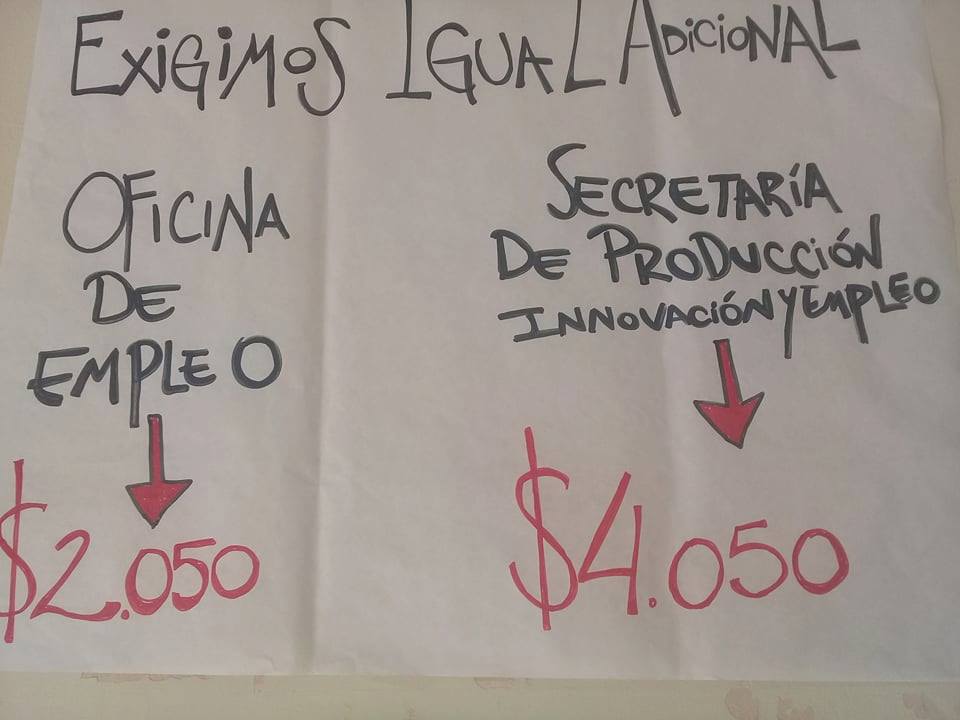 Exigimos Igual Adicional
Oficina
De
Empleo
$2.050
Secretaría
De Producción
Innovación y Empleo
$4.050